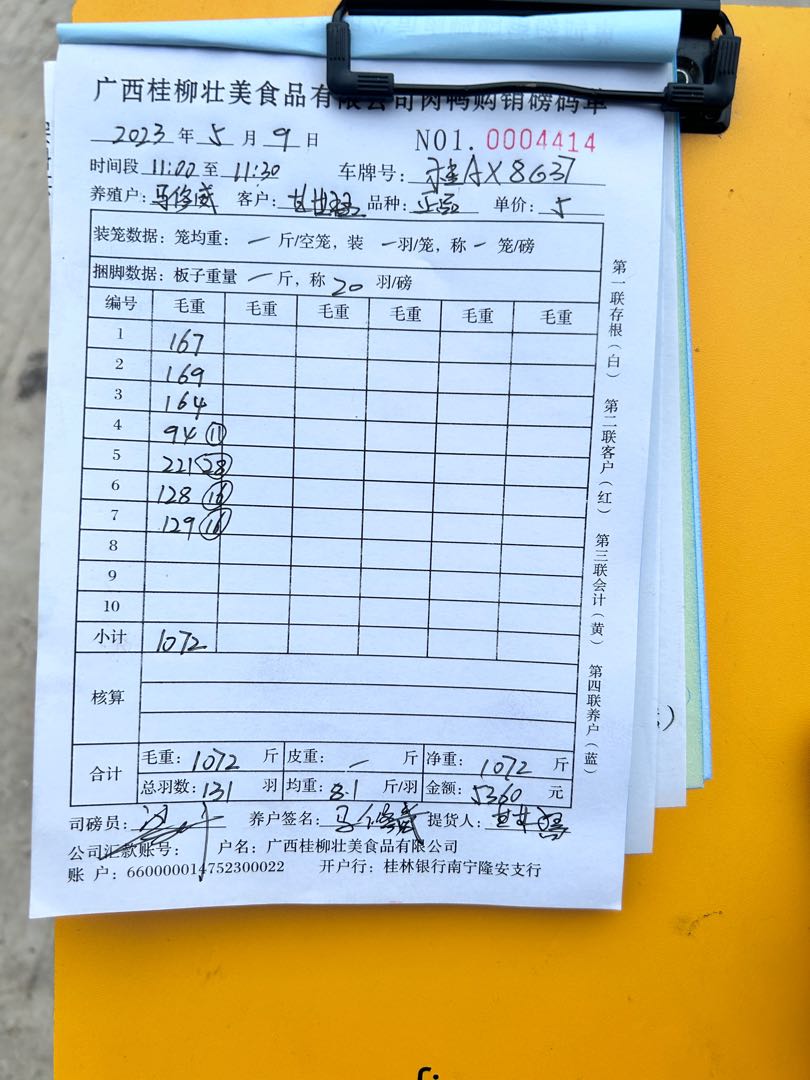 广西桂柳壮美食品有限公司肉鸭购销磅码单
2023年5月9日 NO1. 0004414
时间段 11:00 至 11:30 车牌号: 桂AX8G37
养殖户: 马俊威 客户: 品种: 单价: 5
装笼数据: 笼均重: — 斤/空笼, 装 — 羽/笼, 称 — 笼/磅
捆脚数据: 板子重量 — 斤, 称 20 羽/磅
编号 毛重 毛重 毛重 毛重 毛重 毛重
1 167
2 169
3 164
4 94 11
5 221 28
6 128 16
7 129 16
8
9
10
小计 1072
核算
合计 毛重: 1072 斤 皮重: — 斤 净重: 1072 斤
总羽数: 131 羽 均重: 8.1 斤/羽 金额: 5360 元
司磅员: 养户签名: 马俊威 提货人:
公司汇款账号: 户名: 广西桂柳壮美食品有限公司
账户: 660000014752300022 开户行: 桂林银行南宁隆安支行
第一联存根(白) 第二联客户(红) 第三联会计(黄) 第四联养户(蓝)